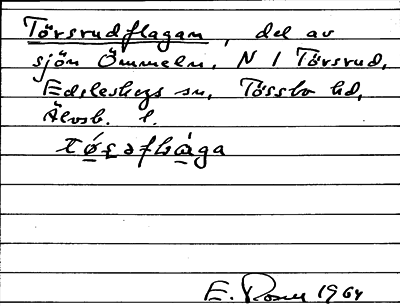 Törsrudflagan, del av
sjön Ömmeln, N I Törsrud,
Edsleskogs sn, Tössbo hd,
Älvsb. l.
E. Rosell 1964